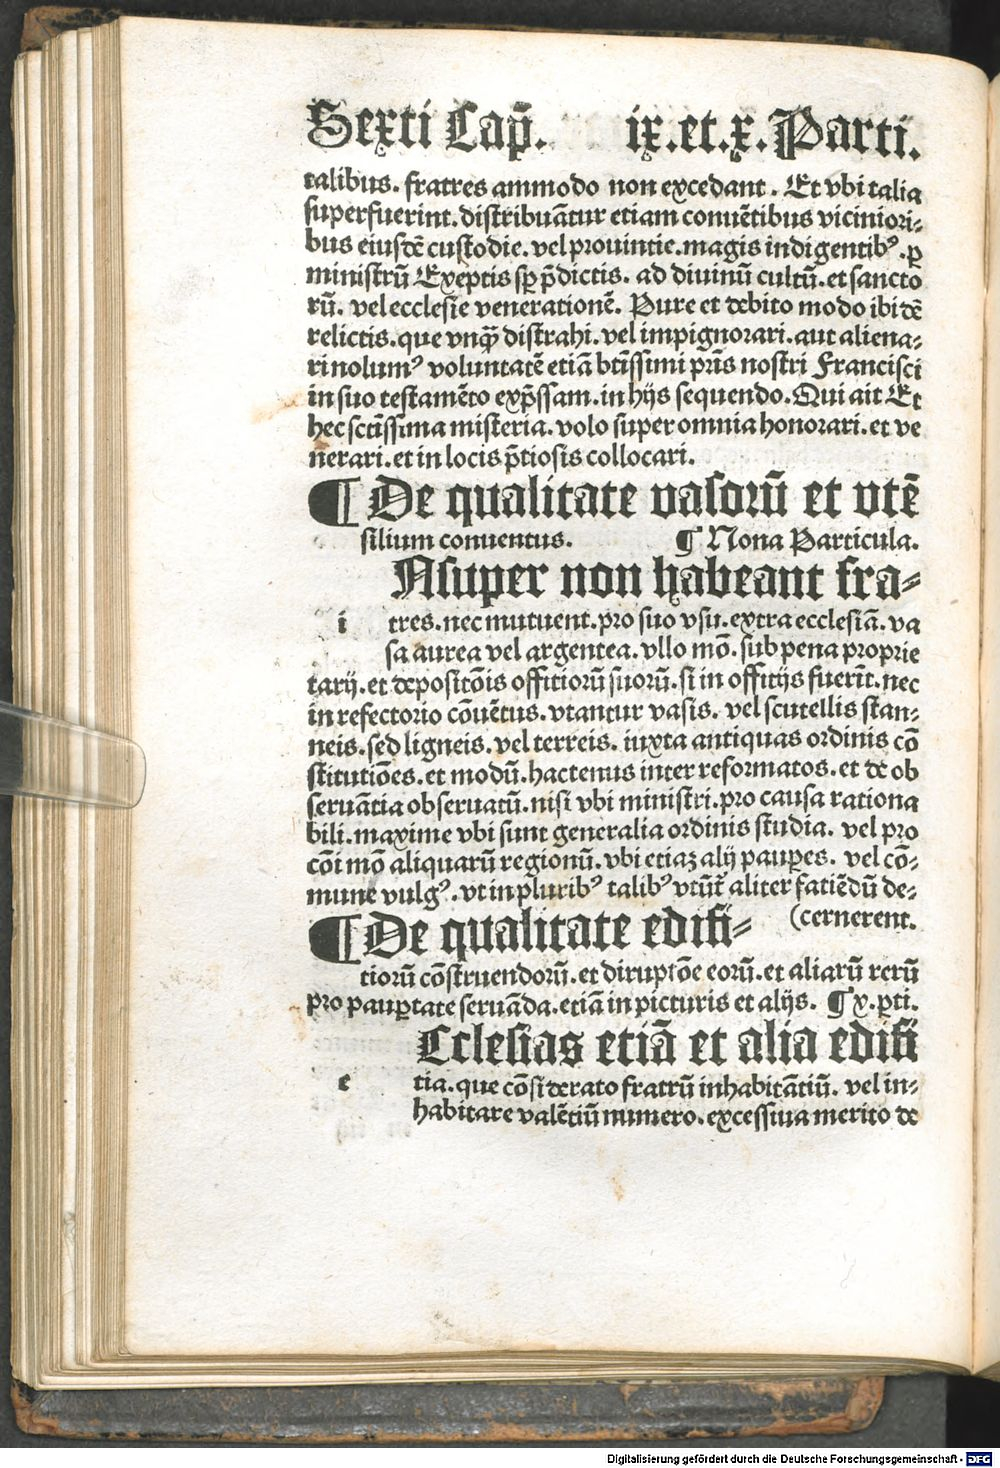 Sexti Cap̄. ix.et.x.Parti.
talibus. fratres ammodo non excedant. Et vbi talia
superfuerint. distribuātur etiam conuētibus viciniori⸗
bus eiusdē custodie. vel prouintie. magis indigentibꝰ. ꝑ
ministrū Exeptis sꝑ p̄dictis. ad diuinū cultū. et sancto
rū. vel ecclesie venerationē. Pure et debito modo ibidē
relictis. que vnqꝫ̄ distrahi. vel impignorari. aut aliena⸗
ri nolumꝰ voluntatē etiā btīssimi prīs nostri Francisci
in suo testamēto exp̄ssam. in hijs sequendo. Qui ait Et
hec sctīssima misteria. volo super omnia honorari. et ve
nerari. et in locis p̄tiosis collocari.
¶ De qualitate vasorū et vtē
silium conuentus. ¶ Nona Particula.
Nsuper non habeant fra⸗
i tres. nec mutuent. pro suo vsu. extra ecclesiā. va
sa aurea vel argentea. vllo mō. sub pena proprie
tarij. et depositōis offitiorū suorū. si in offitijs fuerīt. nec
in refectorio cōuētus. vtantur vasis. vel scutellis stan⸗
neis. sed ligneis. vel terreis. iuxta antiquas ordinis cō
stitutiōes. et modū. hactenus inter reformatos. et de ob
seruātia obseruatū. nisi vbi ministri. pro causa rationa
bili. maxime vbi sunt generalia ordinis studia. vel pro
cōi mō aliquarū regionū. vbi etiaꝫ alij pauꝑes. vel cō⸗
mune vulgꝰ. vt in pluribꝰ talibꝰ vtūt̄ aliter fatiēdū de⸗
(cernerent.
¶ De qualitate edifi⸗
tiorū cōstruendorū. et diruptōe eorū. et aliarū rerū
pro pauꝑtate seruāda. etiā in picturis et alijs. ¶ x. ꝑti.
Cclesias etiā et alia edifi
e tia. que cōsiderato fratrū inhabitātiū. vel in⸗
habitare valētiū numero. excessiua merito de
Digitalisierung gefördert durch die Deutsche Forschungsgemeinschaft - DFG